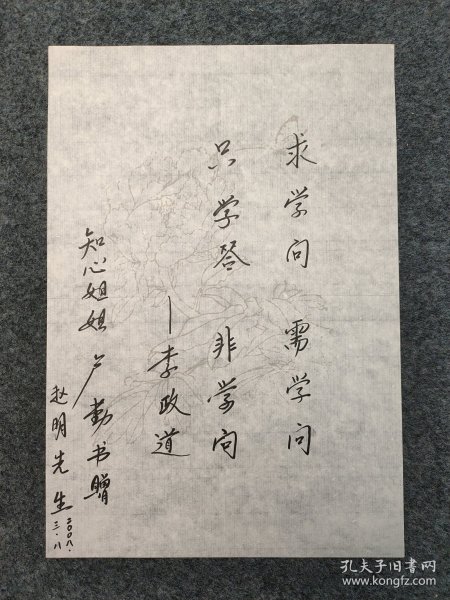 求学问 需学问
只学答 非学问
—李政道
知心姐姐 卢勤书赠
赵明先生 二〇〇八.三.八
孔夫子旧书网
www.kongfz.com